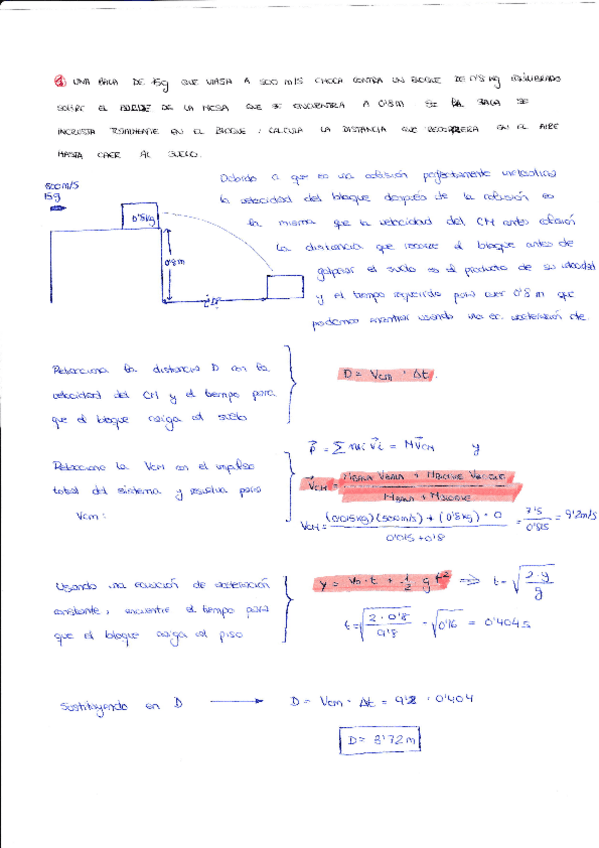 ① UNA BALA DE 15g QUE VIAJA A 500 m/s CHOCA CONTRA UN BLOQUE DE 0'8 kg EQUILIBRADO
SOBRE EL BORDE DE LA MESA QUE SE ENCUENTRA A 0'8m SI LA BALA SE
INCRUSTA TOTALMENTE EN EL BLOQUE, CALCULA LA DISTANCIA QUE RECORRERA EN EL AIRE
HASTA CAER AL SUELO.
500 m/s
15g
0'8kg
0'8m
Debido a que es una colisión perfectamente inelastica
la velocidad del bloque después de la colisión es
la misma que la velocidad del CM antes colisión
La distancia que recorre el bloque antes de
golpear el suelo es el producto de su velocidad
y el tiempo requerido para caer 0'8 m que
podemos encontrar usando una ec aceleración cte.
Relaciona la distancia D con la
velocidad del CM y el tiempo para
que el bloque caiga al suelo
D = Vcm · Δt.
Relacione la Vcm con el impulso
total del sistema y resuelva para
Vcm:
p⃗ = Σ mi v⃗i = M v⃗CM y
V⃗CM = (MBALA VBALA + MBLOQUE VBLOQUE) / (MBALA + MBLOQUE)
VCM = ((0'015kg)(500m/s) + (0'8kg) · 0) / (0'015 + 0'8) = 7'5 / 0'815 = 9'2m/s
Usando una ecuación de aceleración
constante, encuentre el tiempo para
que el bloque caiga al piso
y = v0 · t + 1/2 g t² ⇒ t = √(2·y / g)
t = √(2 · 0'8 / 9'8) = √0'16 = 0'404s
Sustituyendo en D → D = Vcm · Δt = 9'2 · 0'404
D = 3'72m